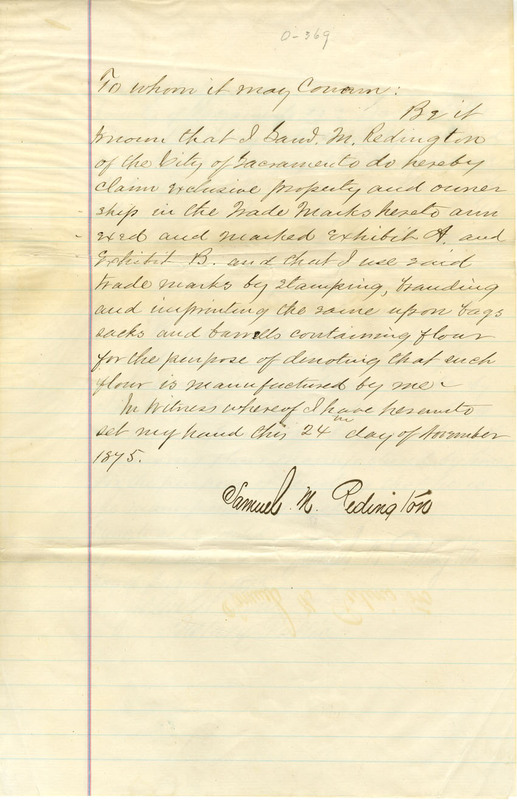 0-369
To whom it may Concern:
Be it
known that I Saml. M. Redington
of the City of Sacramento do hereby
claim exclusive property and owner
ship in the Trade Marks hereto ann
exed and marked Exhibit A. and
Exhibit B. and that I use said
trade marks by stamping, branding
and imprinting the same upon bags
sacks and barrells containing flour
for the purpose of denoting that such
flour is manufactured by me-
In Witness whereof I have hereunto
set my hand this 24th day of November
1875.
Samuel M. Redington